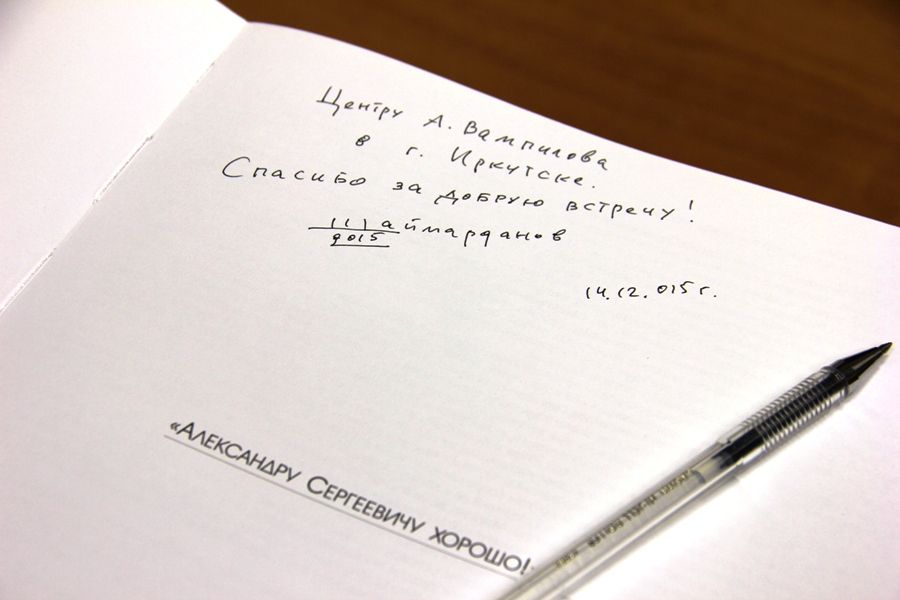 Центру А. Вампилова
в г. Иркутске.
Спасибо за добрую встречу!
Шаймарданов
2015
14.12.015г.
«Александру Сергеевичу хорошо!